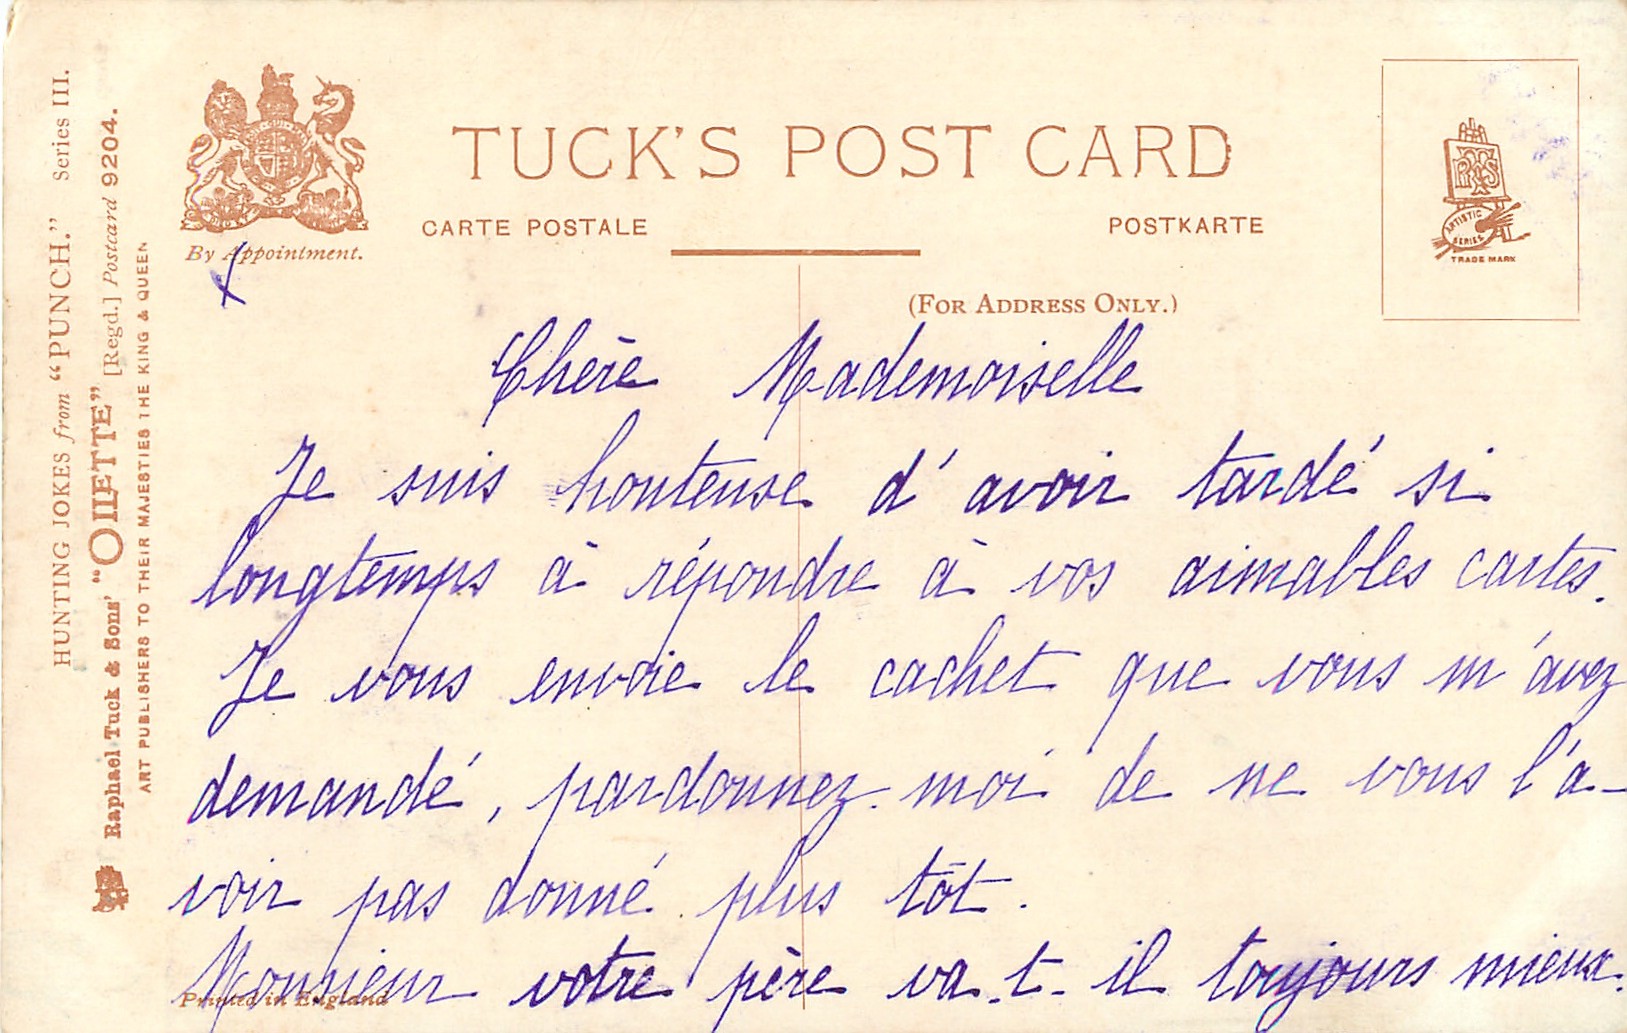 HUNTING JOKES from “PUNCH.” Series III.
Raphael Tuck & Sons' “OILETTE” [Regd.] Postcard 9204.
ART PUBLISHERS TO THEIR MAJESTIES THE KING & QUEEN
By Appointment.
TUCK'S POST CARD
CARTE POSTALE
POSTKARTE
(FOR ADDRESS ONLY.)
RTS
ARTISTIC
SERIES
TRADE MARK
Chère Mademoiselle
Je suis honteuse d'avoir tardé si
longtemps à répondre à vos aimables cartes.
Je vous envoie le cachet que vous m'avez
demandé, pardonnez-moi de ne vous l'a-
voir pas donné plus tôt.
Monsieur votre père va-t-il toujours mieux.
Printed in England